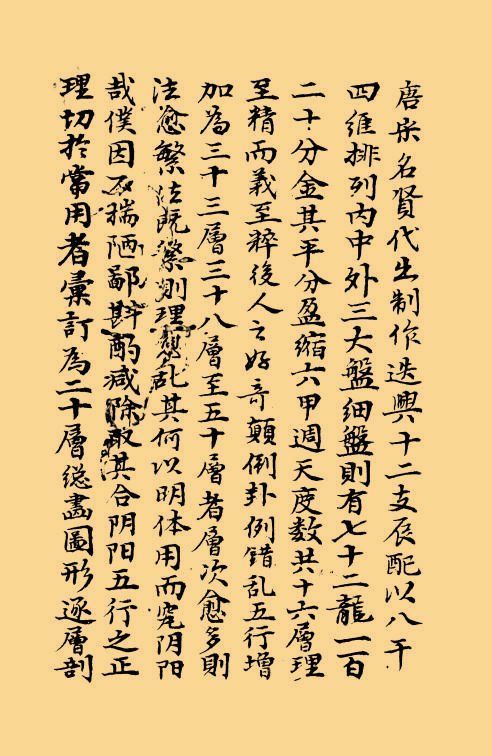 唐宋名賢代出制作迭興十二支辰配以八干
四維排列内中外三大盤细盤則有七十二龍一百
二十分金其平分盈縮六甲週天度数共十六層理
至精而義至粹後人之好奇顛倒卦例錯乱五行增
加為三十三層三十八層至五十層者層次愈多則
法愈繁法既繁則理愈乱其何以明体用而究阴阳
哉僕因不揣陋鄙斟酌减除取其合阴阳五行之正
理切於常用者彙訂為二十層總畵圖形逐層剖